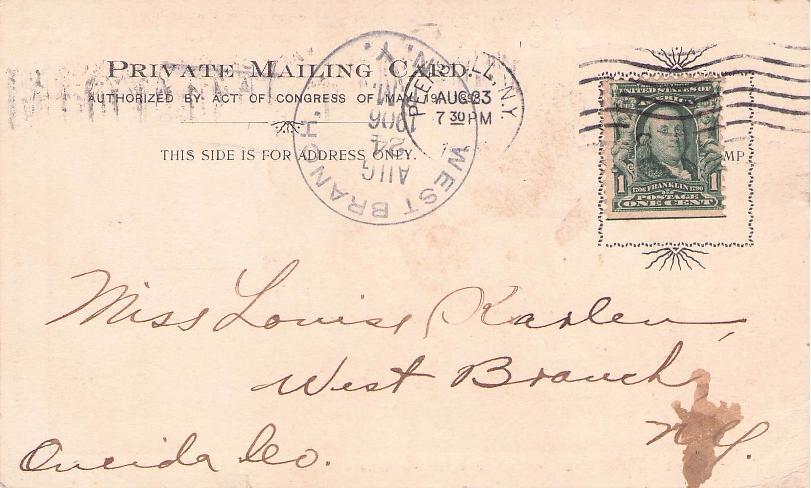 PRIVATE MAILING CARD.
AUTHORIZED BY ACT OF CONGRESS OF MAY 19
THIS SIDE IS FOR ADDRESS ONLY.
L, N.Y.
AUG 23
7 30 PM
WEST BRANCH, N.Y.
AUG
24
AM
1906
UNITED STATES OF
AMERICA
1 1
1706 FRANKLIN 1790
POSTAGE
ONE CENT
MP
Miss Louise Karlen,
West Branch,
Oneida Co. N.Y.